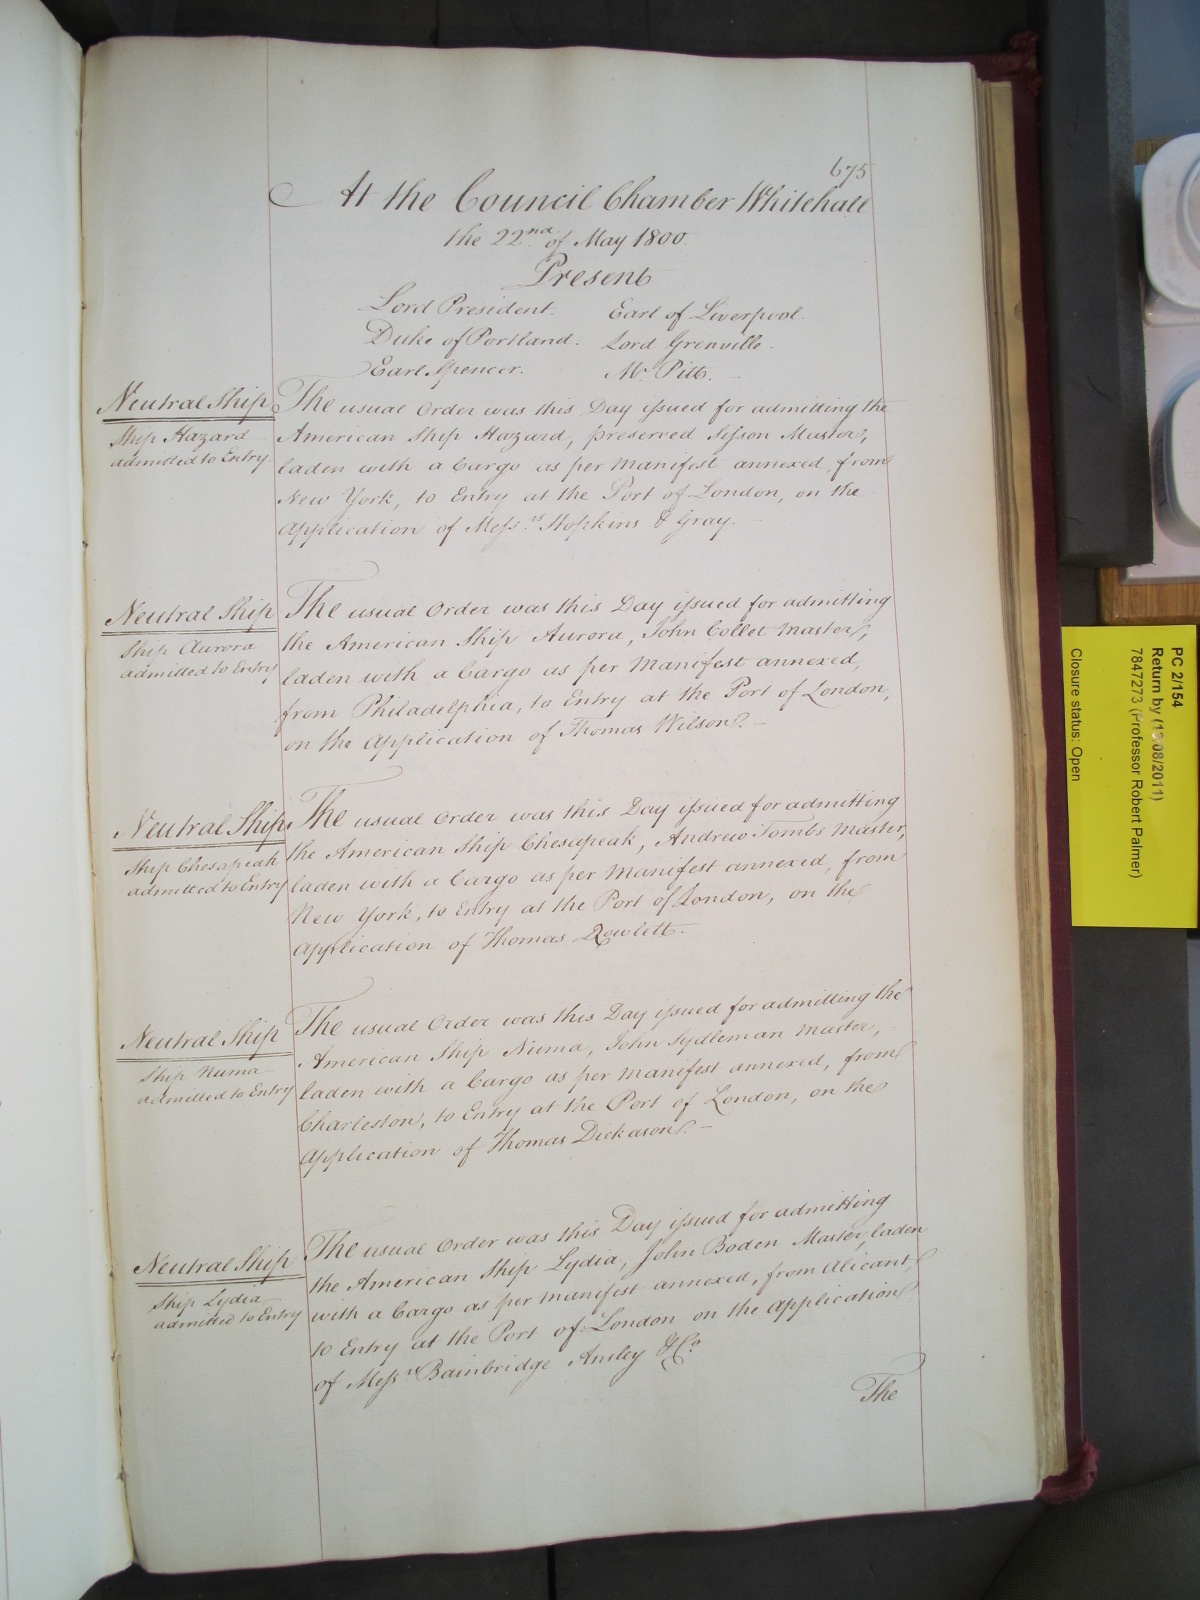 675
At the Council Chamber Whitehall
the 22nd of May 1800.
Present
Lord President. Earl of Liverpool.
Duke of Portland. Lord Grenville.
Earl Spencer. Mr. Pitt.
Neutral Ship
Ship Hazard
admitted to Entry.
The usual Order was this Day issued for admitting the
American Ship Hazard, preserved Sisson Master,
laden with a Cargo as per Manifest annexed, from
New York, to Entry at the Port of London, on the
Application of Messrs. Hopkins & Gray.
Neutral Ship
Ship Aurora
admitted to Entry
The usual Order was this Day issued for admitting
the American Ship Aurora, John Collet Master,
laden with a Cargo as per Manifest annexed,
from Philadelphia, to Entry at the Port of London,
on the Application of Thomas Wilson.
Neutral Ship
Ship Chesapeak
admitted to Entry
The usual Order was this Day issued for admitting
the American Ship Chesapeak, Andrew Tombs Master,
laden with a Cargo as per Manifest annexed, from
New York, to Entry at the Port of London, on the
Application of Thomas Rowlett.
Neutral Ship
Ship Numa
admitted to Entry
The usual Order was this Day issued for admitting the
American Ship Numa, John Sydleman Master,
laden with a Cargo as per Manifest annexed, from
Charleston, to Entry at the Port of London, on the
Application of Thomas Dickason.
Neutral Ship
Ship Lydia
admitted to Entry
The usual Order was this Day issued for admitting
the American Ship Lydia, John Boden Master, laden
with a Cargo as per Manifest annexed, from Alicant,
to Entry at the Port of London on the Application
of Messrs. Bainbridge Ansley & Co.
The
PC 2/154
Return by (13/08/2011)
7847273 (Professor Robert Palmer)
Closure status: Open